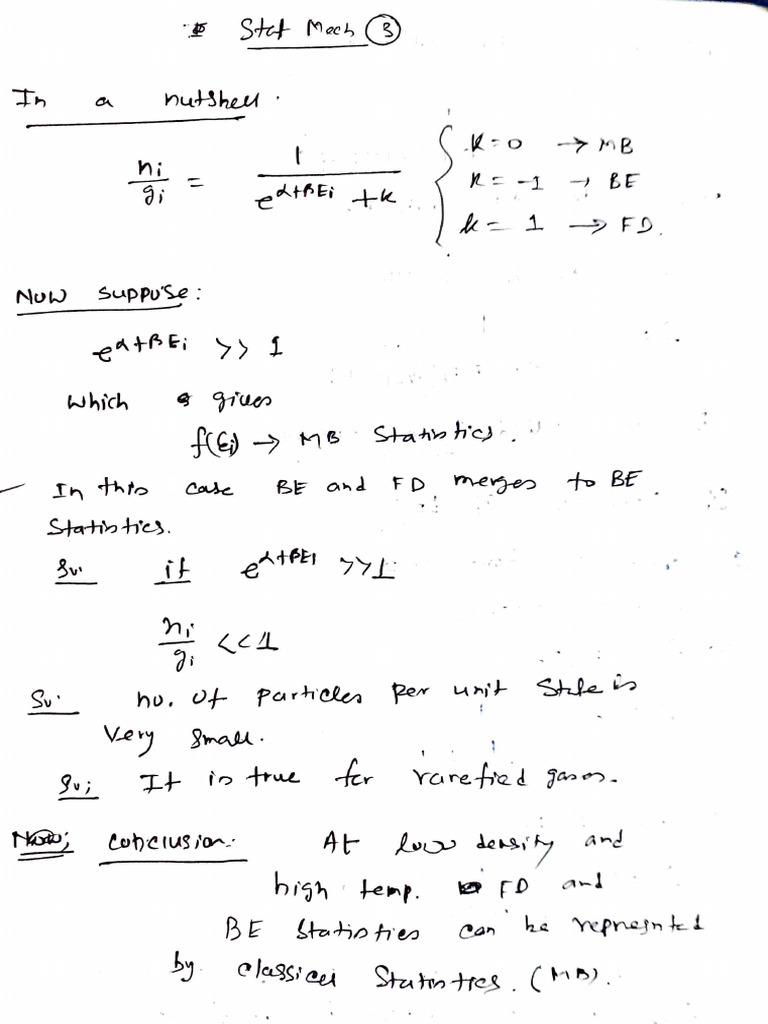 Stat Mech ③
In a nutshell.
nᵢ/gᵢ = 1/(e^(α+βEᵢ) + k) { k=0 → MB
k = -1 → BE
k = 1 → FD.
Now suppose:
e^(α+βEᵢ) >> 1
Which gives
f(Eᵢ) → MB Statistics.
In this case BE and FD merges to BE
Statistics.
So: if e^(α+βEᵢ) >> 1
nᵢ/gᵢ << 1
So: no. of particles per unit State is
Very Small.
So; It is true for rarefied gases.
Now; Conclusion: At low density and
high temp. FD and
BE Statistics can be represnted
by classical Statistics. (MB).